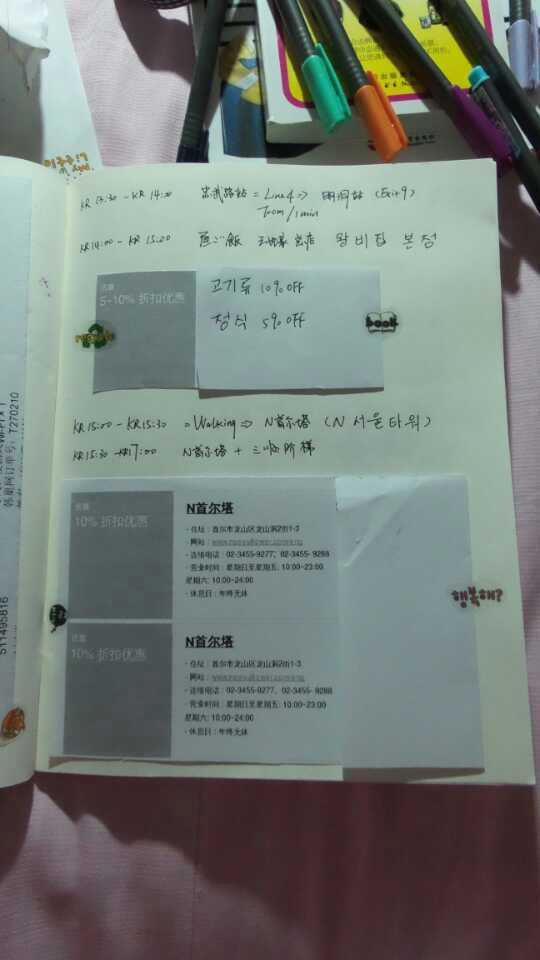 KR 13:30 - KR 14:00 忠武路站 = Line 4 => 明洞站 (Exit 9)
700m/1min
KR 14:00 - KR 15:00 王妃家 总店 왕비집 본점
优惠
5-10% 折扣优惠
고기류 10% OFF
정식 5% OFF
book
KR 15:00 - KR 15:30 = Walking => N首尔塔 (N 서울타워)
KR 15:30 - KR 17:00 N首尔塔 + 三顺阶梯
优惠
10% 折扣优惠
N首尔塔
- 住址 : 首尔市龙山区龙山洞2街1-3
- 网站 : www.nseoultower.com/eng
- 连络电话 : 02-3455-9277、02-3455- 9288
- 营业时间 : 星期日至星期五: 10:00~23:00
星期六: 10:00~24:00
- 休息日 : 年终无休
행복해?
优惠
10% 折扣优惠
N首尔塔
- 住址 : 首尔市龙山区龙山洞2街1-3
- 网站 : www.nseoultower.com/eng
- 连络电话 : 02-3455-9277、02-3455- 9288
- 营业时间 : 星期日至星期五: 10:00~23:00
星期六: 10:00~24:00
- 休息日 : 年终无休
韩巢网订单号: T270210
511495816